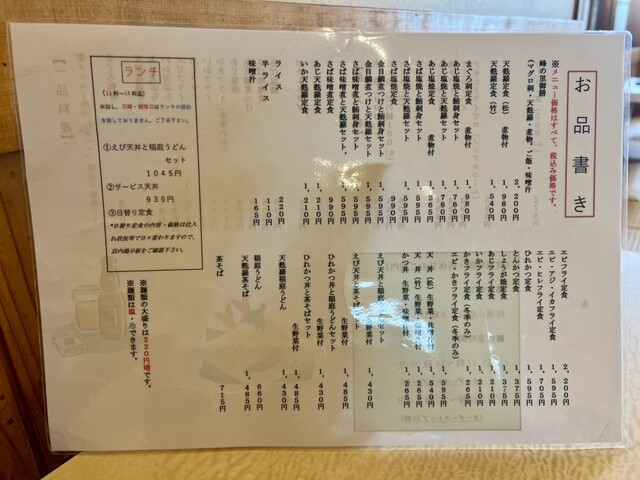 お品書き
※メニュー価格はすべて、税込み価格です。
峰の里御膳 2,200円
(マグロ刺・天麩羅・煮物、ご飯・味噌汁)
天麩羅定食(松) 煮物付 1,980円
天麩羅定食(竹) 1,540円
まぐろ刺定食 煮物付 1,980円
あじ塩焼と鮪刺身セット 1,760円
あじ塩焼と天麩羅セット 1,760円
あじ塩焼定食 煮物付 1,265円
さば塩焼と鮪刺身セット 1,595円
さば塩焼と天麩羅セット 1,595円
さば塩焼定食 煮物付 990円
金目鯛煮つけと鮪刺身セット
金目鯛煮つけと天麩羅セット
さば味噌煮と鮪刺身セット 1,595円
さば味噌煮と天麩羅セット 1,595円
さば味噌煮定食 990円
あじ天麩羅定食 1,210円
いか天麩羅定食 1,210円
ライス 220円
半ライス 110円
味噌汁 165円
ランチ
(11時〜14時迄)
※但し、日曜・祝祭日はランチの提供
を致しておりません。ご了承下さい。
①えび天丼と稲庭うどん
セット
1045円
②サービス天丼
935円
③日替り定食
*日替り定食の内容・価格は仕入
れ状況等で日々変わりますので、
店内掲示板をご確認下さい。
エビフライ定食 2,200円
エビ・アジ・イカフライ定食 1,595円
エビ・ヒレフライ定食 1,705円
ひれかつ定食 1,595円
とんかつ定食 1,375円
しょうが焼定食 1,375円
あじフライ定食 1,210円
いかフライ定食 1,210円
かきフライ定食(冬季のみ)
エビ・かきフライ定食(冬季のみ)
天丼(松) 生野菜・味噌汁付 1,595円
天丼(竹) 生野菜・味噌汁付 1,540円
かつ丼 生野菜・味噌汁付 1,265円
えび天丼と稲庭うどんセット
えび天丼と茶そばセット 生野菜付 1,430円
ひれかつ丼と稲庭うどんセット 生野菜付 1,485円
ひれかつ丼と茶そばセット 生野菜付 1,430円
天麩羅稲庭うどん 生野菜付 1,485円
稲庭うどん 660円
天麩羅茶そば 1,485円
茶そば 715円
※麺類の大盛りは220円増です。
※麺類は温・冷できます。